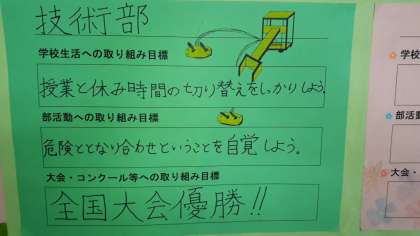 技術部
学校生活への取り組み目標
授業と休み時間の切り替えをしっかりしよう。
部活動への取り組み目標
危険ととなり合わせということを自覚しよう。
大会・コンクール等への取り組み目標
全国大会優勝!!
学校
部活動
大会・